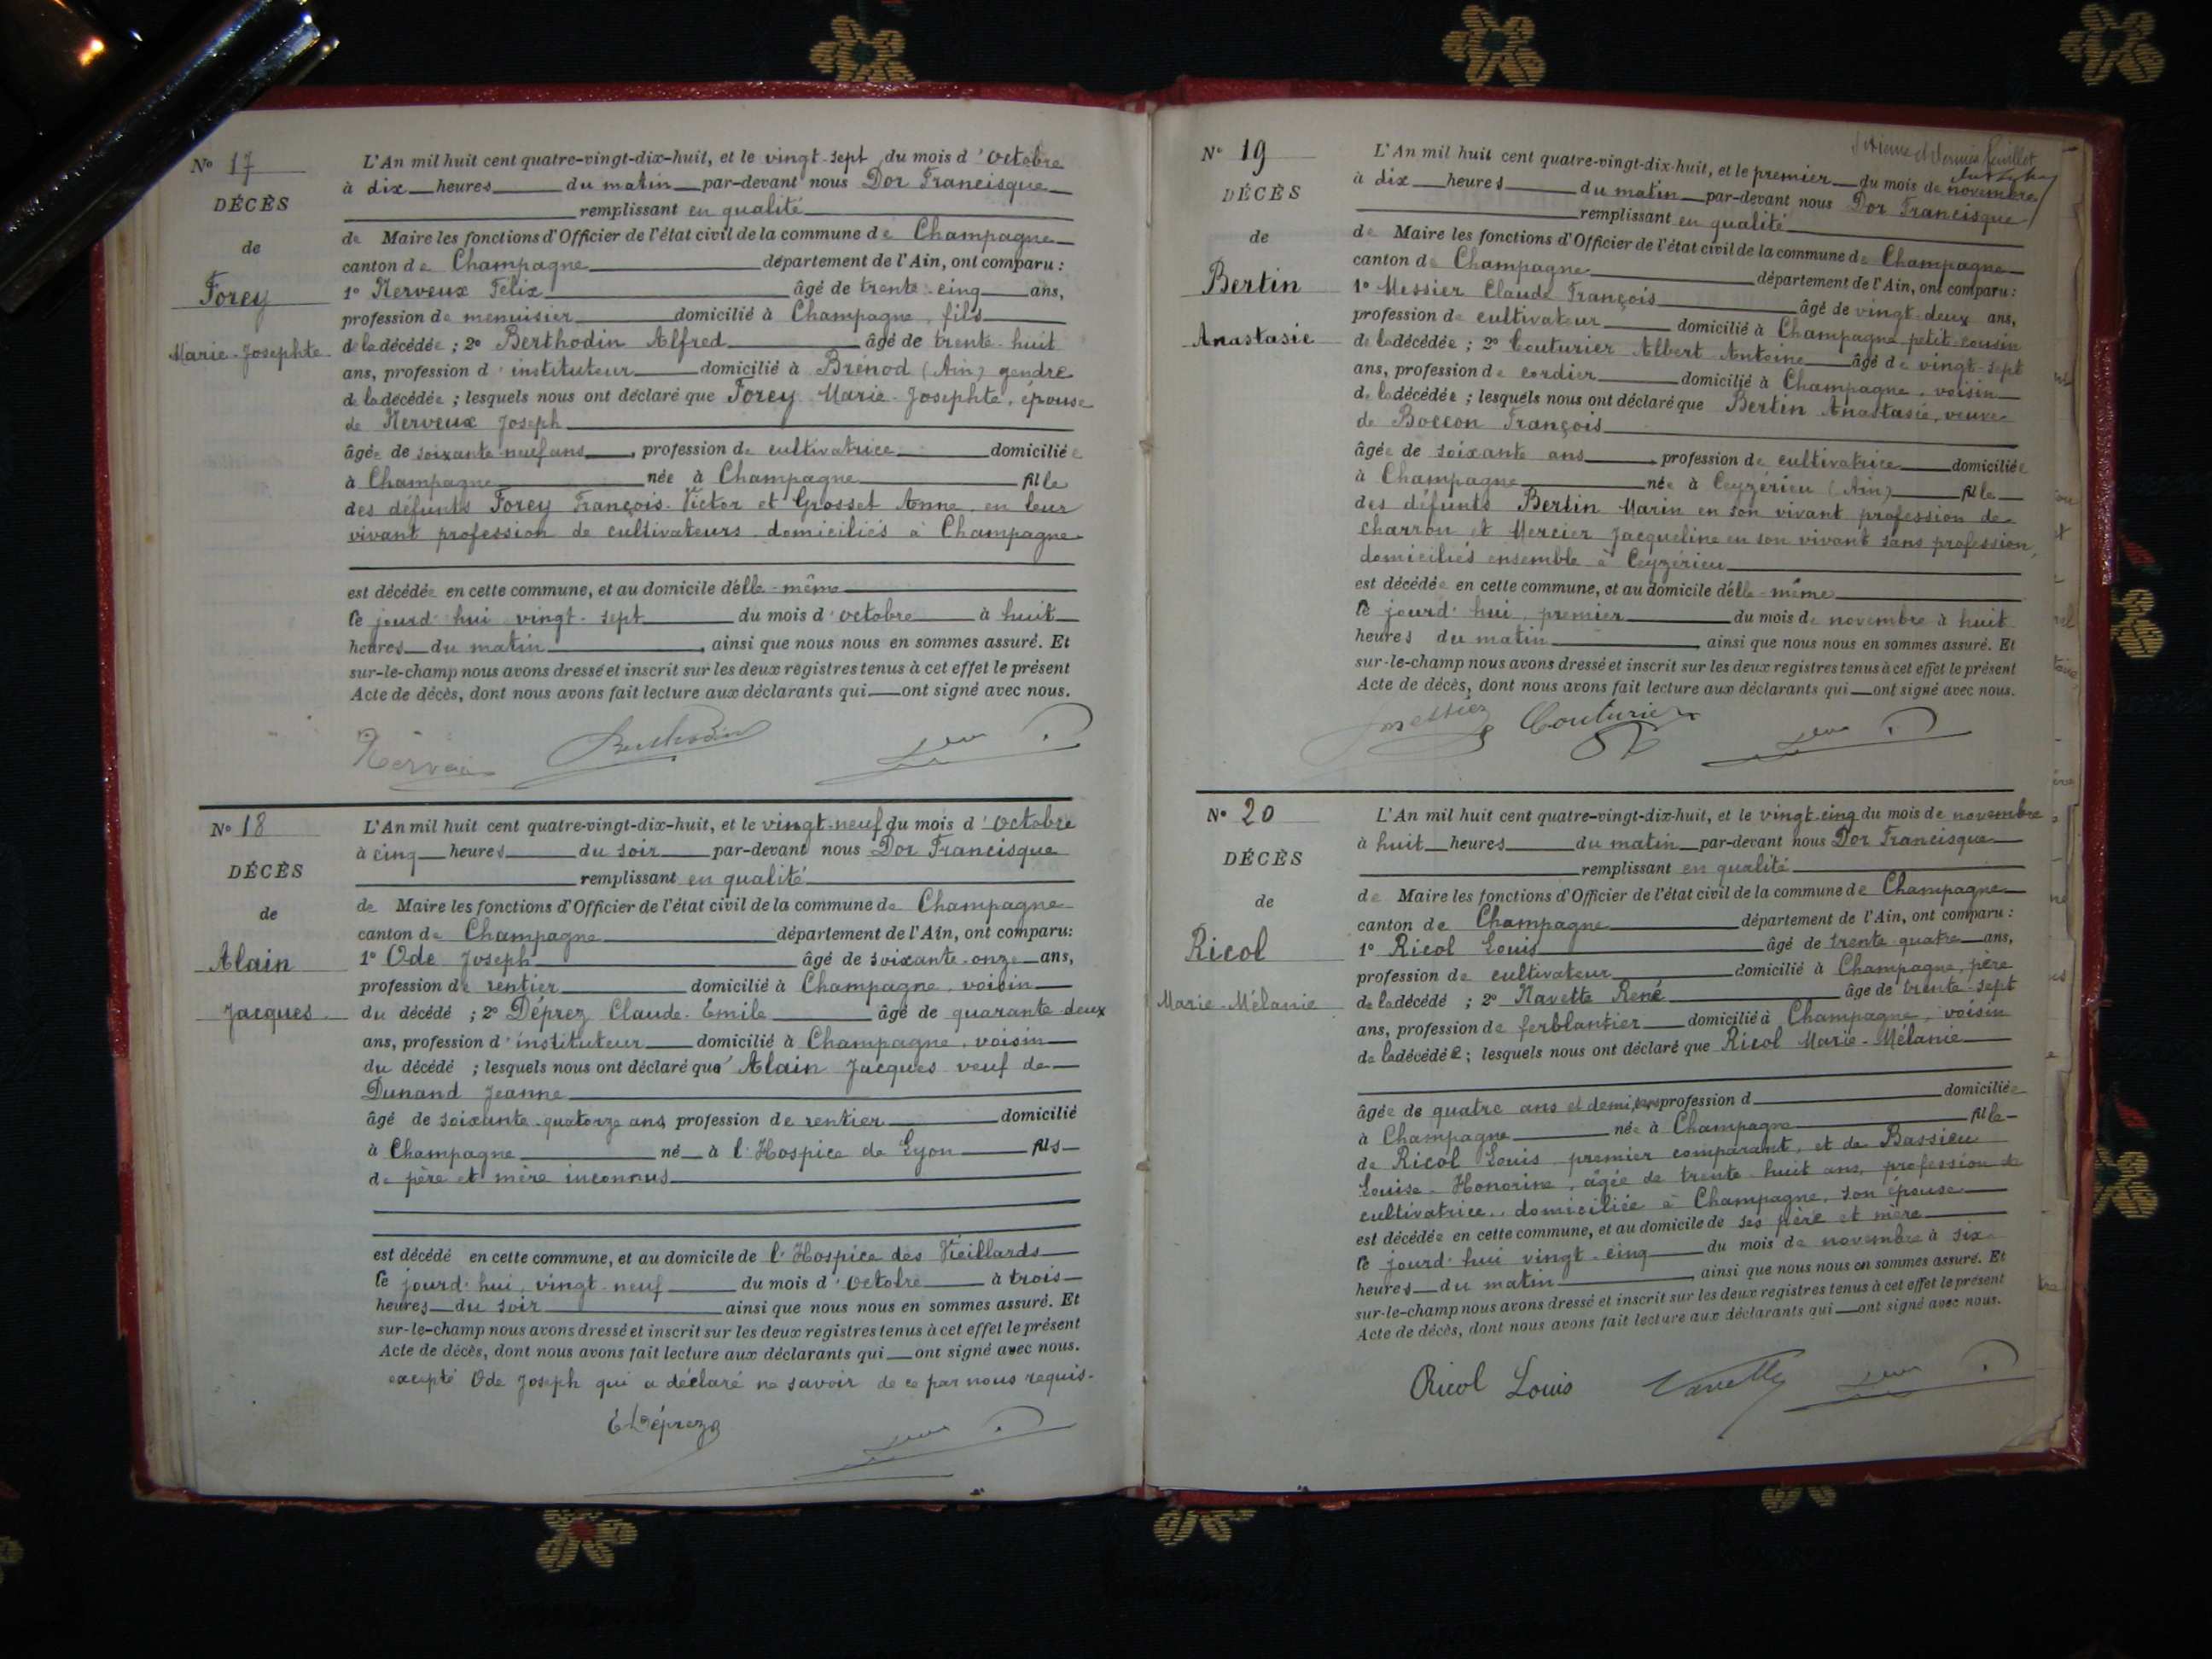 N° 17
DÉCÈS
de
Forey
Marie-Josephte
L'An mil huit cent quatre-vingt-dix-huit, et le vingt-sept du mois d'octobre
à dix heures du matin par-devant nous Dor Francisque
remplissant en qualité
de Maire les fonctions d'Officier de l'état civil de la commune de Champagne
canton de Champagne département de l'Ain, ont comparu :
1° Nerveux Félix âgé de trente-cinq ans,
profession de menuisier domicilié à Champagne, fils
de la décédée ; 2° Berthodin Alfred âgé de trente-huit
ans, profession d'instituteur domicilié à Brénod (Ain) gendre
de la décédée ; lesquels nous ont déclaré que Forey Marie-Josephte, épouse
de Nerveux Joseph
âgée de soixante-neuf ans, profession de cultivatrice domiciliée
à Champagne née à Champagne fille
des défunts Forey François-Victor et Grosset Anne, en leur
vivant profession de cultivateurs domiciliés à Champagne
est décédée en cette commune, et au domicile d'elle-même
ce jourd'hui vingt-sept du mois d'octobre à huit
heures du matin, ainsi que nous nous en sommes assuré. Et
sur-le-champ nous avons dressé et inscrit sur les deux registres tenus à cet effet le présent
Acte de décès, dont nous avons fait lecture aux déclarants qui ont signé avec nous.
Berthodin
N° 18
DÉCÈS
de
Alain
Jacques
L'An mil huit cent quatre-vingt-dix-huit, et le vingt-neuf du mois d'octobre
à cinq heures du soir par-devant nous Dor Francisque
remplissant en qualité
de Maire les fonctions d'Officier de l'état civil de la commune de Champagne
canton de Champagne département de l'Ain, ont comparu:
1° Ode Joseph âgé de soixante-onze ans,
profession de rentier domicilié à Champagne, voisin
du décédé ; 2° Déprez Claude-Émile âgé de quarante-deux
ans, profession d'instituteur domicilié à Champagne, voisin
du décédé ; lesquels nous ont déclaré que Alain Jacques veuf de
Dunand Jeanne
âgé de soixante-quatorze ans, profession de rentier domicilié
à Champagne né à l'Hospice de Lyon fils
de père et mère inconnus
est décédé en cette commune, et au domicile de l'Hospice des Vieillards
ce jourd'hui, vingt-neuf du mois d'octobre à trois
heures du soir ainsi que nous nous en sommes assuré. Et
sur-le-champ nous avons dressé et inscrit sur les deux registres tenus à cet effet le présent
Acte de décès, dont nous avons fait lecture aux déclarants qui ont signé avec nous.
excepté Ode Joseph qui a déclaré ne savoir de ce par nous requis.
E Déprez
dernier feuillet
N° 19
DÉCÈS
de
Bertin
Anastasie
L'An mil huit cent quatre-vingt-dix-huit, et le premier du mois de novembre
à dix heures du matin par-devant nous Dor Francisque
remplissant en qualité
de Maire les fonctions d'Officier de l'état civil de la commune de Champagne
canton de Champagne département de l'Ain, ont comparu :
1° Messier Claude François âgé de vingt-deux ans,
profession de cultivateur domicilié à Champagne petit-cousin
de la décédée ; 2° Couturier Albert Antoine âgé de vingt-sept
ans, profession de cordier domicilié à Champagne, voisin
de la décédée ; lesquels nous ont déclaré que Bertin Anastasie, veuve
de Boccon François
âgée de soixante ans, profession de cultivatrice domiciliée
à Champagne née à Ceyzérieu (Ain) fille
des défunts Bertin Marin en son vivant profession de
charron et Mercier Jacqueline en son vivant sans profession,
domiciliés ensemble à Ceyzérieu
est décédée en cette commune, et au domicile d'elle-même
ce jourd'hui, premier du mois de novembre à huit
heures du matin, ainsi que nous nous en sommes assuré. Et
sur-le-champ nous avons dressé et inscrit sur les deux registres tenus à cet effet le présent
Acte de décès, dont nous avons fait lecture aux déclarants qui ont signé avec nous.
Messier Couturier
N° 20
DÉCÈS
de
Ricol
Marie-Mélanie
L'An mil huit cent quatre-vingt-dix-huit, et le vingt-cinq du mois de novembre
à huit heures du matin par-devant nous Dor Francisque
remplissant en qualité
de Maire les fonctions d'Officier de l'état civil de la commune de Champagne
canton de Champagne département de l'Ain, ont comparu :
1° Ricol Louis âgé de trente-quatre ans,
profession de cultivateur domicilié à Champagne, père
de la décédé ; 2° Navette René âgé de trente-sept
ans, profession de ferblantier domicilié à Champagne, voisin
de la décédée ; lesquels nous ont déclaré que Ricol Marie-Mélanie
âgée de quatre ans et demi, sans profession d domiciliée
à Champagne née à Champagne fille
de Ricol Louis premier comparant, et de Bassieu
Louise-Honorine, âgée de trente-huit ans, profession de
cultivatrice, domiciliée à Champagne, son épouse
est décédée en cette commune, et au domicile de ses père et mère
ce jourd'hui vingt-cinq du mois de novembre à six
heures du matin, ainsi que nous nous en sommes assuré. Et
sur-le-champ nous avons dressé et inscrit sur les deux registres tenus à cet effet le présent
Acte de décès, dont nous avons fait lecture aux déclarants qui ont signé avec nous.
Ricol Louis Navette